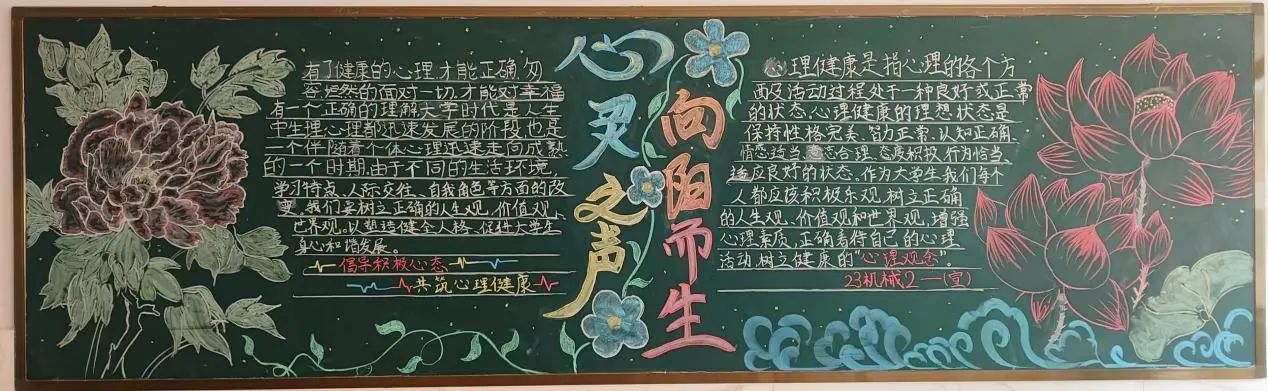 有了健康的心理,才能正确,匆
容坦然的面对一切.才能对幸福
有一个正确的理解大学时代是人生
中生理心理都迅速发展的阶段也是
一个伴随着个体心理迅速走向成熟
的一个时期.由于不同的生活环境,
学习特点、人际交往、自我角色等方面的改
变.我们要树立正确的人生观、价值观、
世界观。以塑造健全人格、促进大学生
身心和谐发展。
倡导积极心态
共筑心理健康
心灵之声
向阳而生
心理健康是指心理的各个方
面及活动过程处于一种良好或正常
的状态.心理健康的理想状态是
保持性格完美、智力正常、认知正确、
情感适当、意志合理、态度积极、行为恰当、
适应良好的状态。作为大学生我们每个
人都应该积极乐观,树立正确
的人生观、价值观和世界观,增强
心理素质,正确看待自己的心理
活动,树立健康的“心理观念”。
23机械2一(宣)